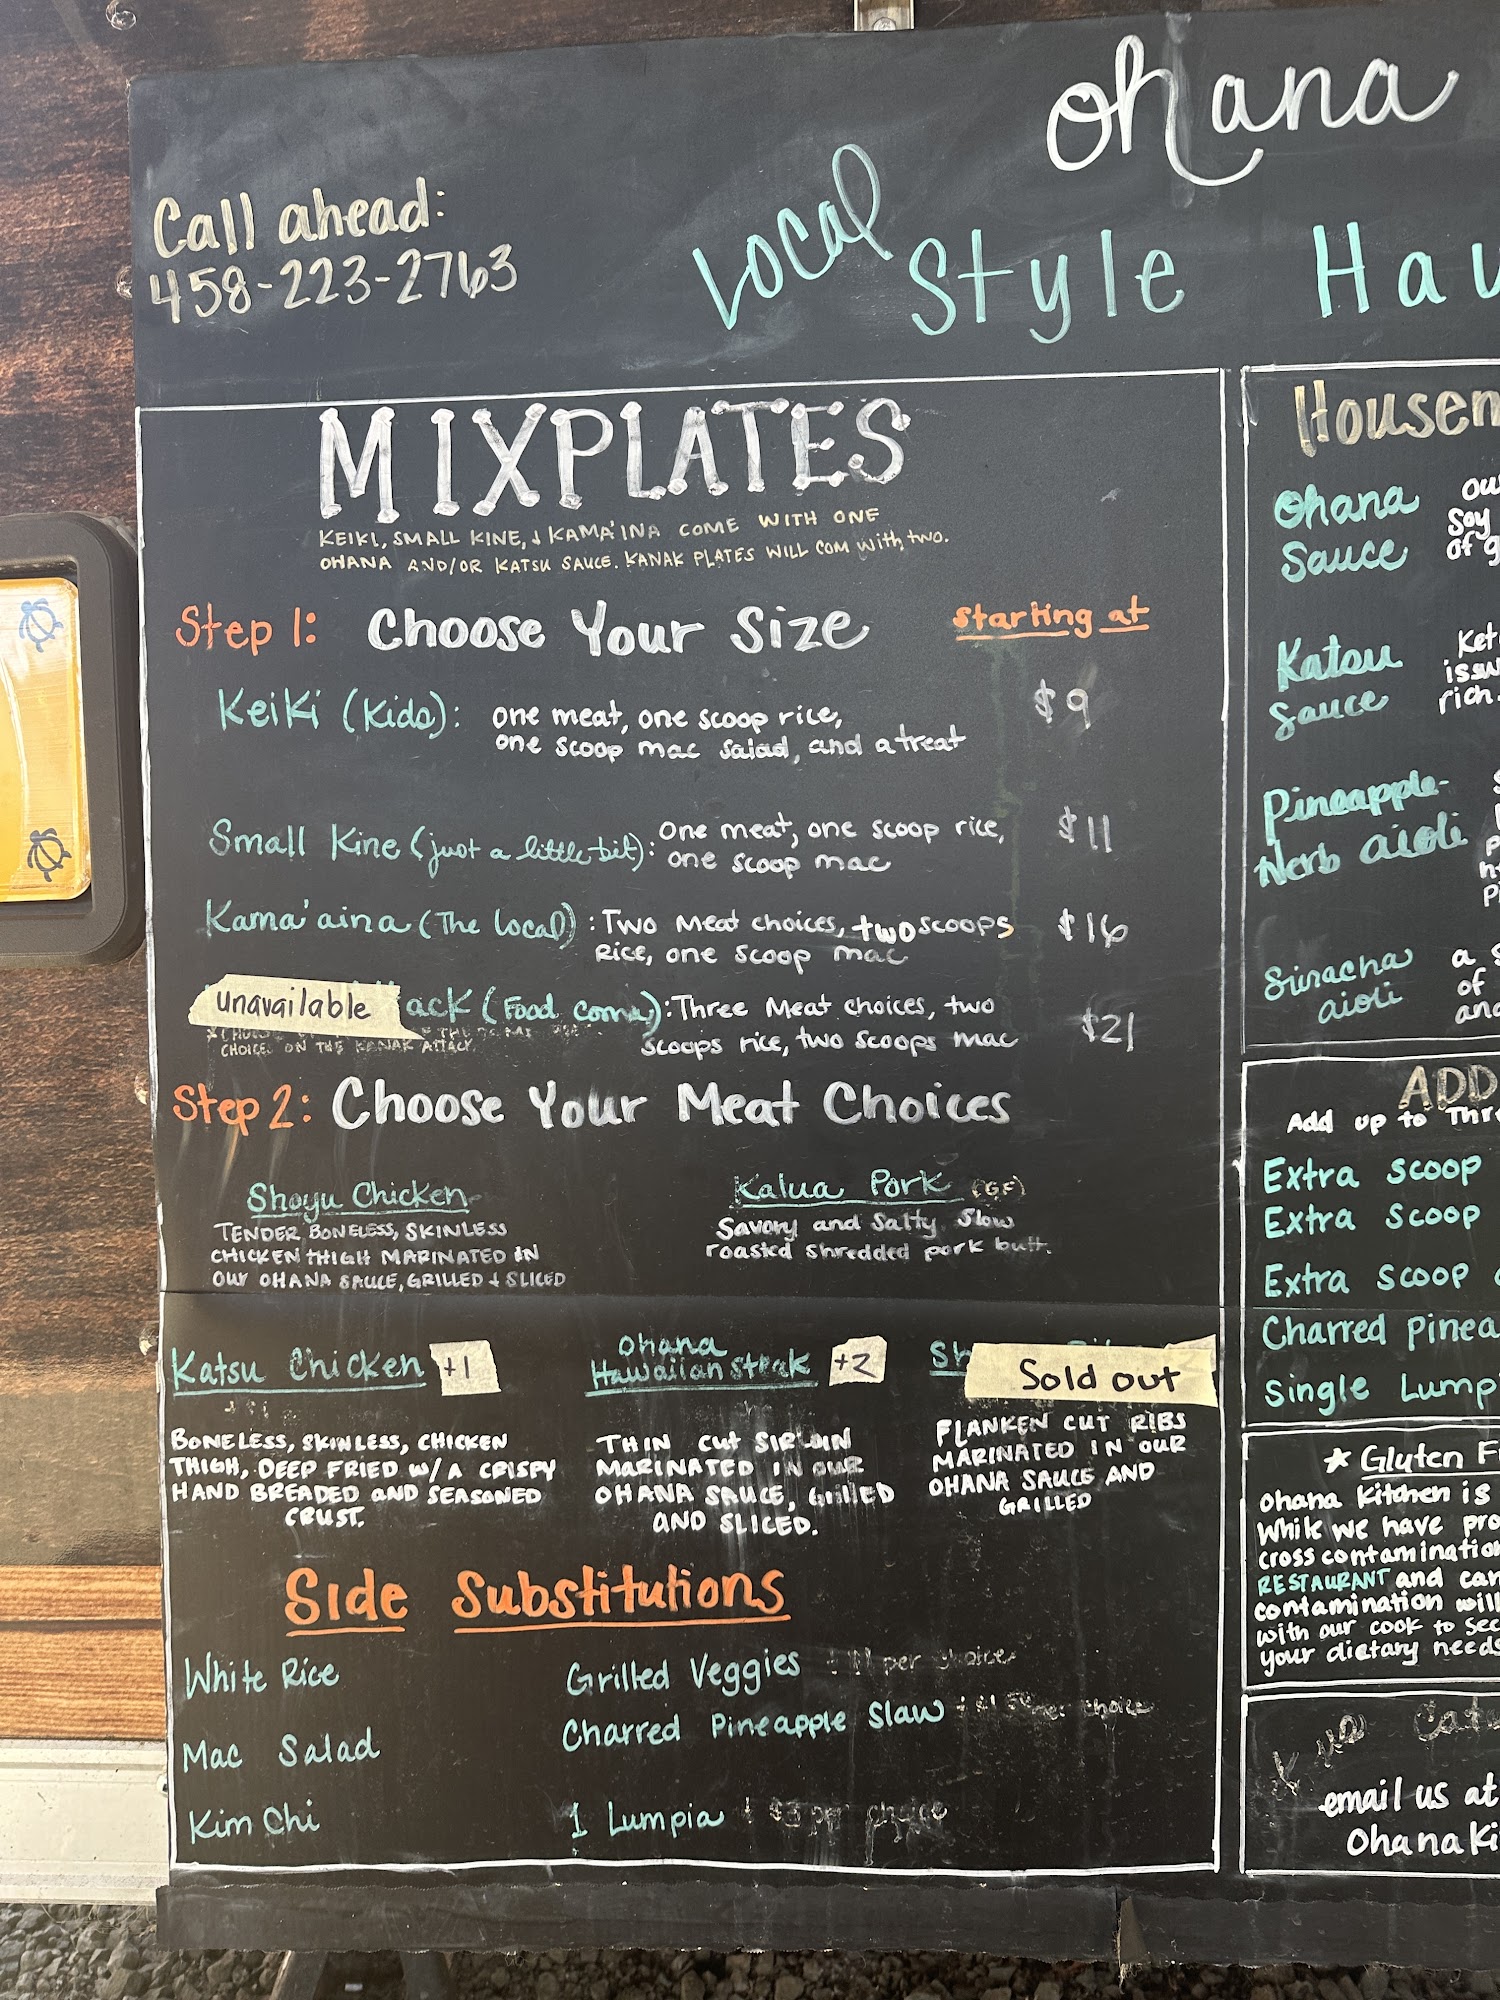 ohana
Local
Style Hav
Call ahead:
458-223-2763
MIXPLATES
KEIKI, SMALL KINE, & KAMA'INA COME WITH ONE
OHANA AND/OR KATSU SAUCE. KANAK PLATES WILL COM with two.
Step 1: Choose Your Size Starting at
Keiki (Kids): one meat, one scoop rice, $9
one scoop mac salad, and a treat
Small Kine (just a little bit): One meat, one scoop rice, $11
one scoop mac
Kama'aina (The local): Two Meat choices, two scoops $16
Rice, one scoop mac
unavailable ack (Food coma): Three Meat choices, two $21
scoops rice, two scoops mac
CHOICE ON THE KANAK ATTACK.
Step 2: Choose Your Meat Choices
Shoyu Chicken
TENDER BONELESS, SKINLESS
CHICKEN THIGH MARINATED IN
OUR OHANA SAUCE, GRILLED & SLICED
Kalua Pork (GF)
Savory and Salty, Slow
roasted shredded pork butt.
Katsu Chicken +1
BONELESS, SKINLESS, CHICKEN
THIGH, DEEP FRIED W/ A CRISPY
HAND BREADED AND SEASONED
CRUST.
Ohana
Hawaiian steak +2
THIN CUT SIRLOIN
MARINATED IN OUR
OHANA SAUCE, Grilled
AND SLICED.
Sh Sold out
FLANKEN CUT RIBS
MARINATED IN OUR
OHANA SAUCE AND
GRILLED
Side Substitutions
White Rice
Mac Salad
Kim Chi
Grilled Veggies per choice
Charred Pineapple Slaw + $1.50 per choice
1 Lumpia + $3 per choice
Housem
Ohana
Sauce
ou
Soy
of g
Katsu
Sauce
Ket
issu
rich.
Pineapple-
Herb aioli
Sriracha
aioli
a s
of
and
ADD
Add up to Thre
Extra scoop
Extra scoop
Extra scoop
Charred pinea
Single Lump
* Gluten F
Ohana Kitchen is
While we have pro
cross contamination
RESTAURANT and can
contamination will
with our cook to sec
your dietary needs
Cat
email us at
OhanaKi